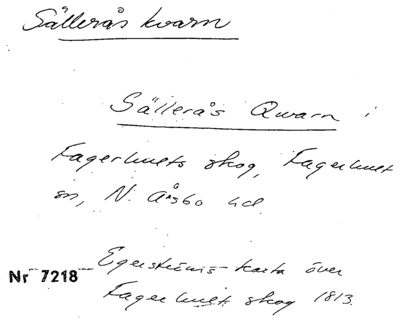 Sällerås kvarn
Sällerås Qwarn i
Fagerhults skog, Fagerhult
sn, N. Åsbo hd.
Nr 7218
Egoskifnis-karta över
Fagerhult skog 1813.